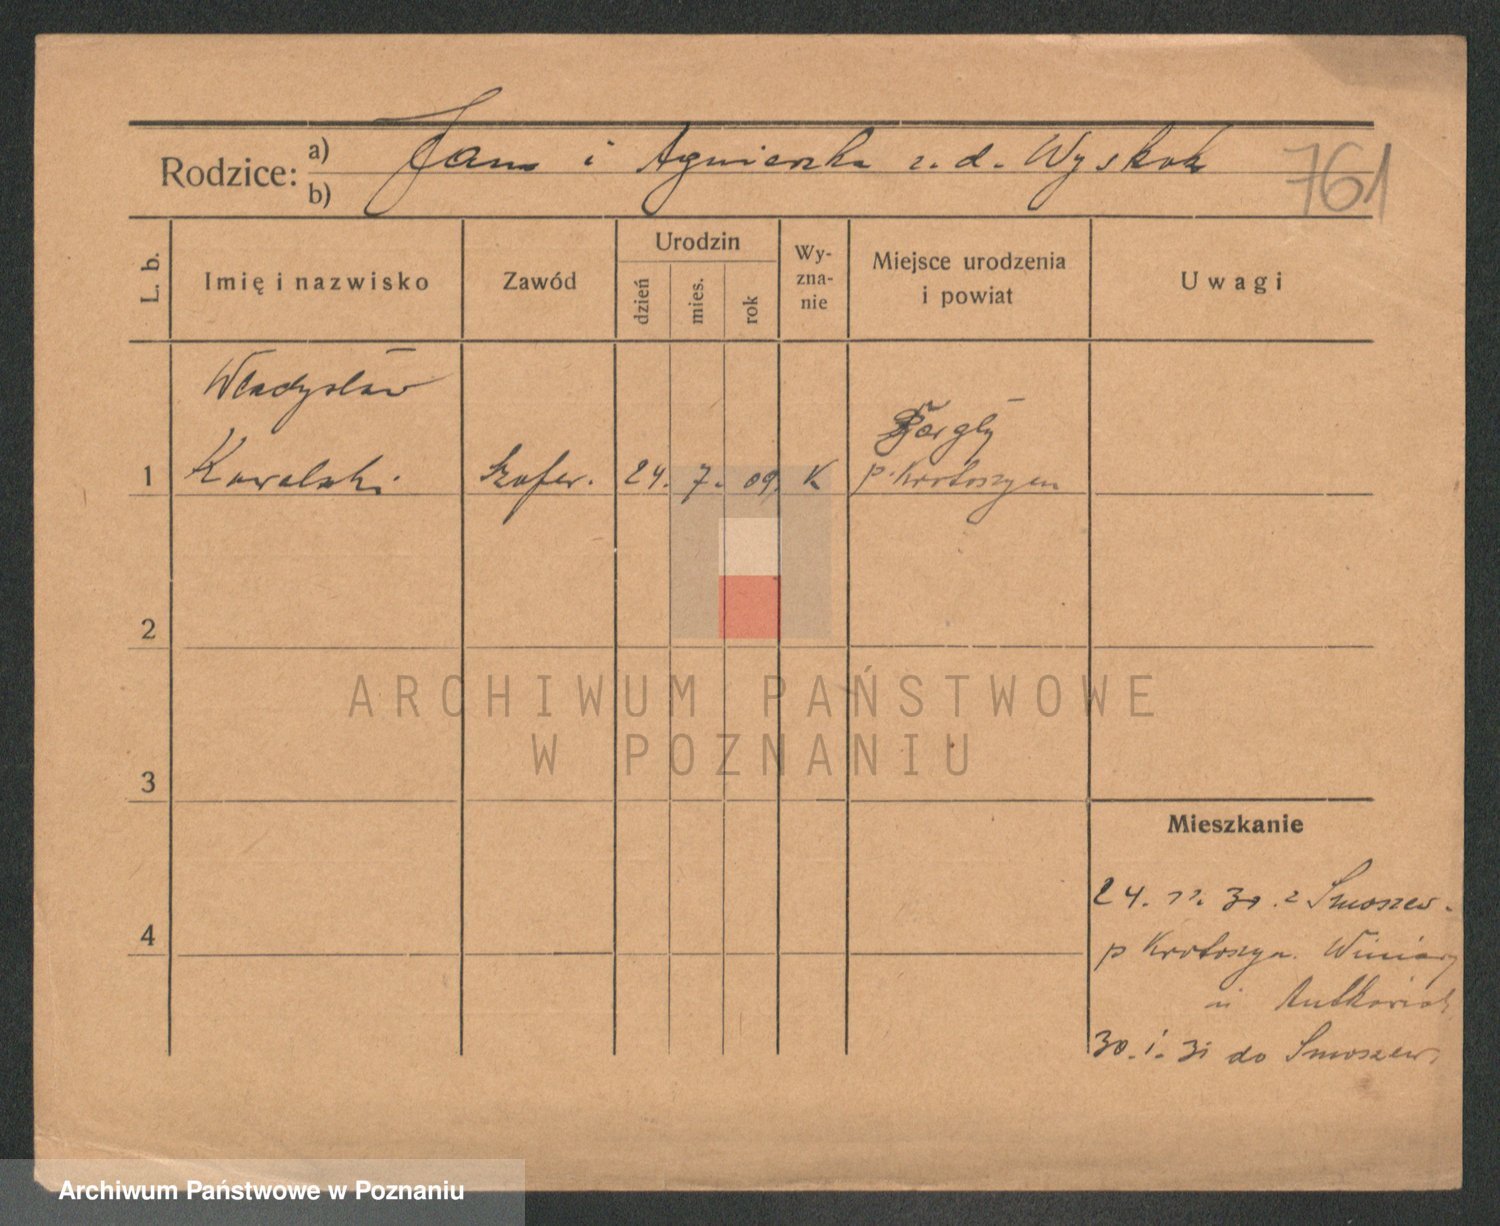 Rodzice: a) Jan i Agnieszka z. d. Wyskok
b)
761
L. b.
Imię i nazwisko
Zawód
Urodzin
dzień
mies.
rok
Wy-
zna-
nie
Miejsce urodzenia
i powiat
Uwagi
Władysław
1 Kowalski Szofer. 24. 7. 09. K
p. Krotoszyn
2
3
4
ARCHIWUM PAŃSTWOWE
W POZNANIU
Mieszkanie
24. 11. 30. z Smoszew.
p Krotoszyn. Winiary
u
30. 1. 31 do Smoszew.
Archiwum Państwowe w Poznaniu